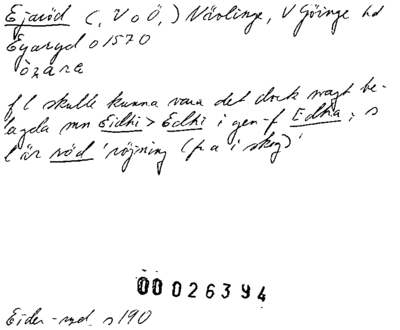 Ejaröd (, V o Ö,) Nävlinge, V Göinge hd
Eyaryd o 1570
òzårə
f l skulle kunna vara det dock svagt be-
lagda mn Eidhi > Edhi i gen-f Edha; s
l är röd 'röjning (fr a i skog)'
00026394
Eider-ryd, s 190